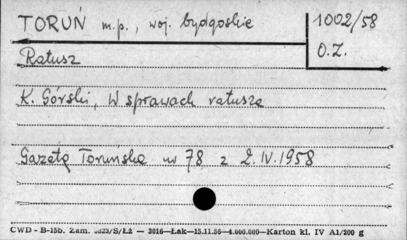 TORUŃ m.p., woj. bydgoskie
1002/58
O.Z.
Ratusz
K. Górski, W sprawach ratusza
Gazeta Toruńska nr 78 z 2.IV.1958
CWD - B-15b. Zam. 5823/S/ŁŻ — 2016—Łak—15.11.56—4.000.000—Karton kl. IV A1/200 g